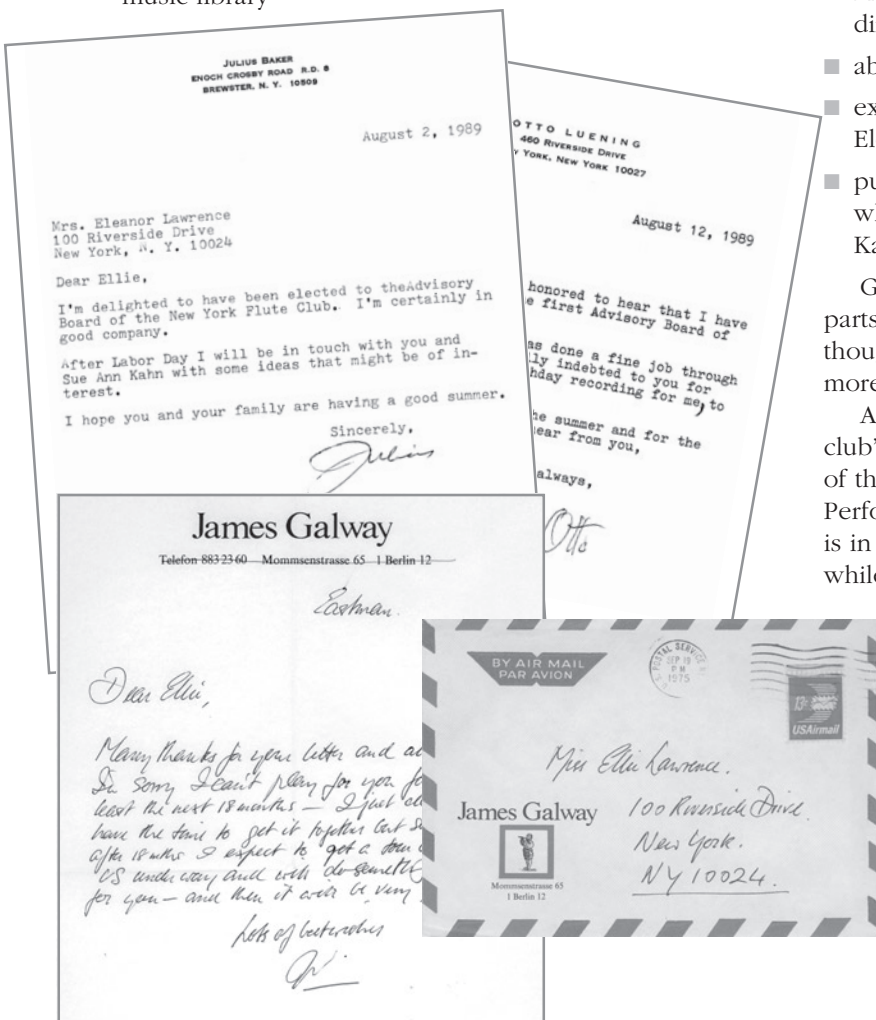 music library
JULIUS BAKER
ENOCH CROSBY ROAD R.D. 8
BREWSTER, N. Y. 10509
August 2, 1989
Mrs. Eleanor Lawrence
100 Riverside Drive
New York, N. Y. 10024
Dear Ellie,
I'm delighted to have been elected to theAdvisory
Board of the New York Flute Club. I'm certainly in
good company.
After Labor Day I will be in touch with you and
Sue Ann Kahn with some ideas that might be of in-
terest.
I hope you and your family are having a good summer.
Sincerely,
Julius
OTTO LUENING
460 RIVERSIDE DRIVE
YORK, NEW YORK 10027
August 12, 1989
honored to hear that I have
e first Advisory Board of
as done a fine job through
ly indebted to you for
hday recording for me, to
he summer and for the
ear from you,
always,
Otto
James Galway
Telefon 883 23 60 Mommsenstrasse 65 1 Berlin 12
Eastman.
Dear Ellie,
Many thanks for your letter and
I'm sorry I can't play for you
least the next 18 months — I just
have the time to get it together but
after 18 mths I expect to get a tour
US underway and will do
for you — and then it will be very
Lots of best wishes
BY AIR MAIL
PAR AVION
U.S. POSTAL SERVICE
SEP 19
P M
1975
13c
USAirmail
Miss Ellie Lawrence.
100 Riverside Drive.
New York.
NY 10024.
James Galway
Mommsenstrasse 65
1 Berlin 12
di
ab
ex
El
pu
wh
Ka
G
parts
thou
more
A
club'
of th
Perfo
is in
while